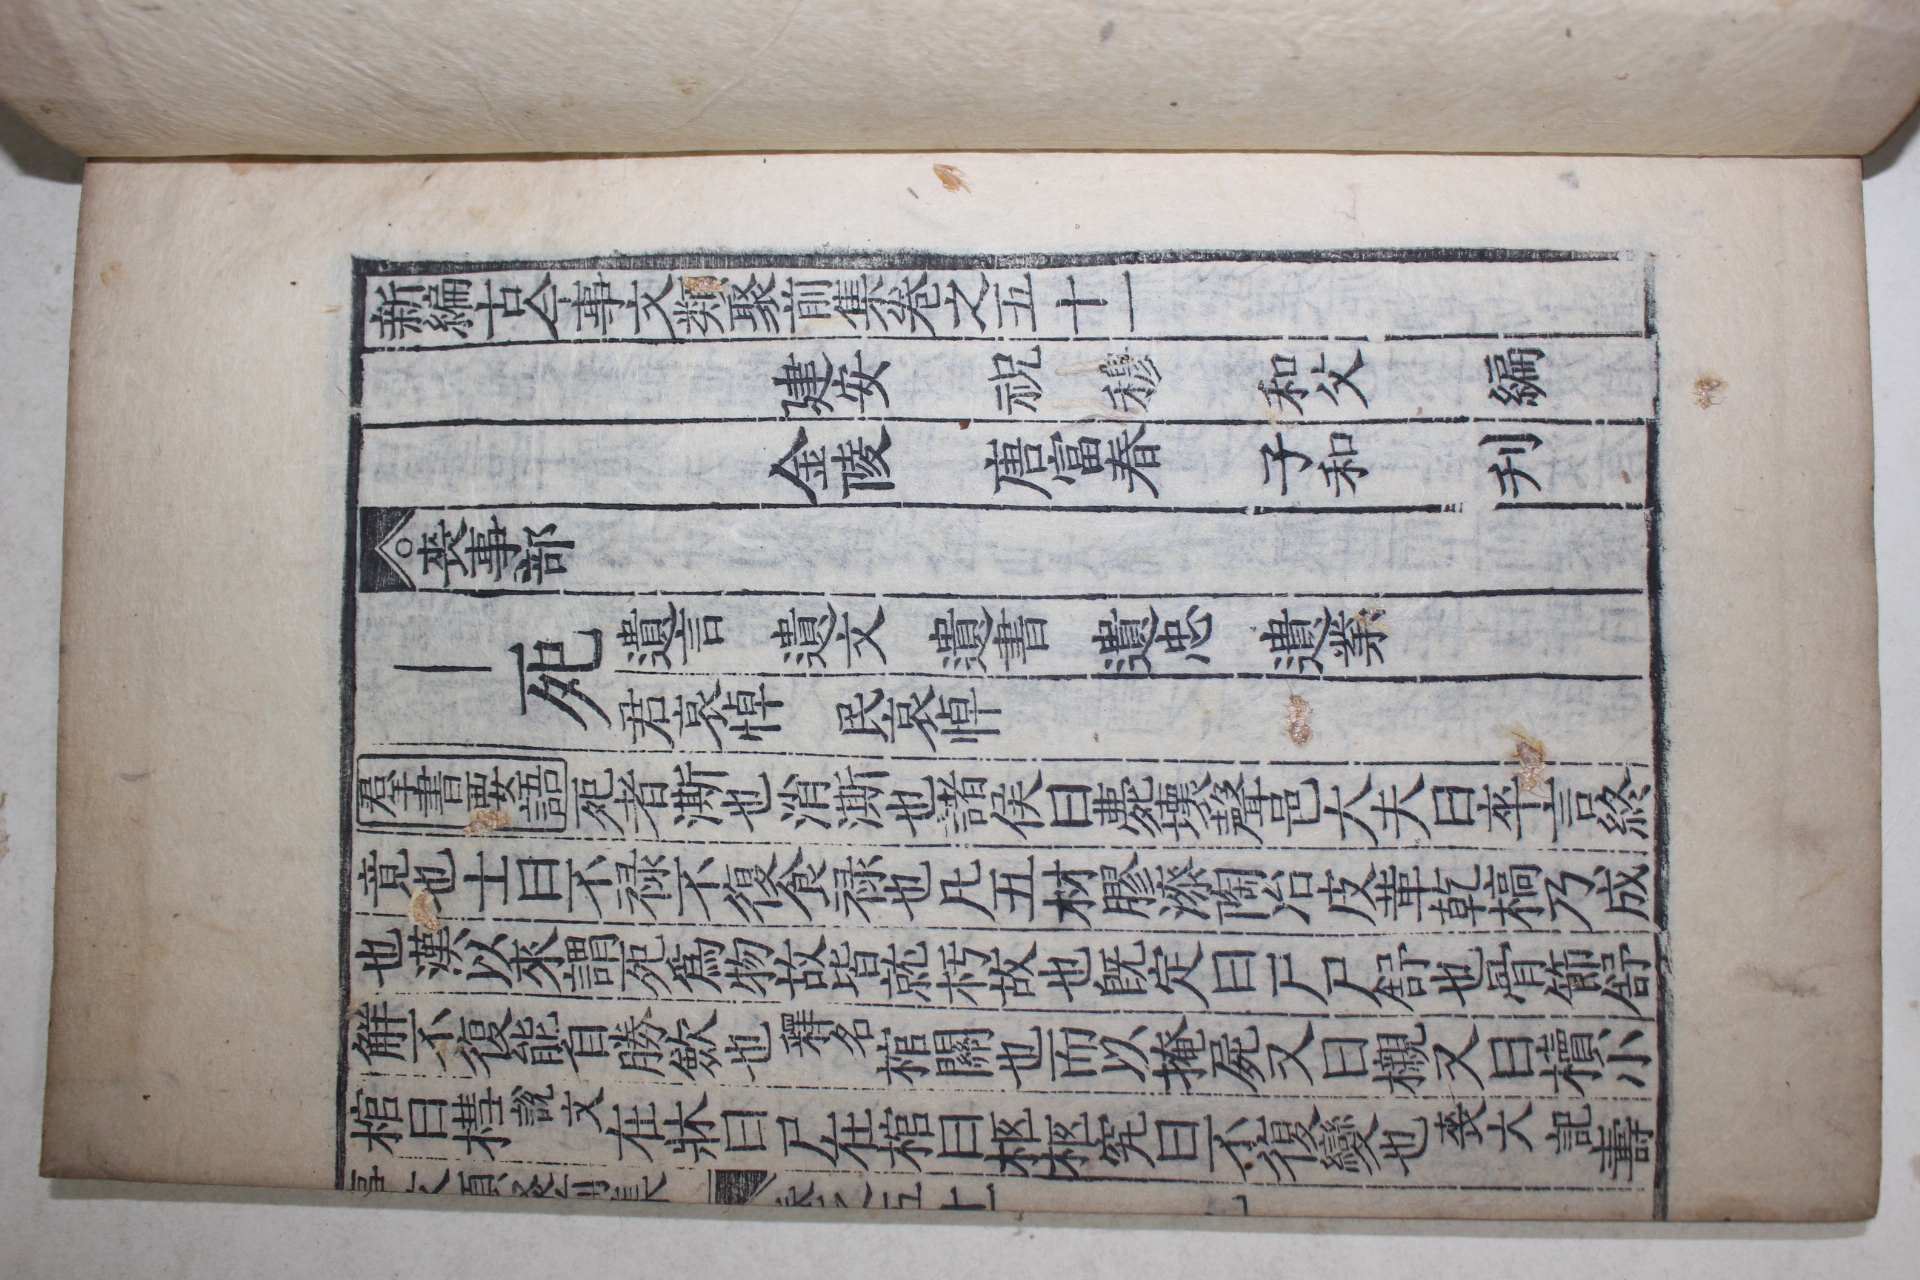 新編古今事文類聚前集卷之五十一
建安 祝穆 和父 編
金陵 唐富春 子和 刋
喪事部
死 遺言 遺文 遺書 遺忠 遺業
君哀悼 民哀悼
群書要語 死者澌也消澌也諸侯曰薨壞聲也大夫曰卒言終
竟也士曰不禄不復食禄也凡五材膠漆陶冶皮革乾槁乃成
也漢以來謂死爲物故皆就朽故也旣定曰尸尸舒也骨節舒
解不復能自勝斂也釋名棺關也而以掩屍又曰櫬又曰櫝小
棺曰槥說文在牀曰尸在棺曰柩柩究曰不復變也喪大記壽
事文類聚前集 卷之五十一